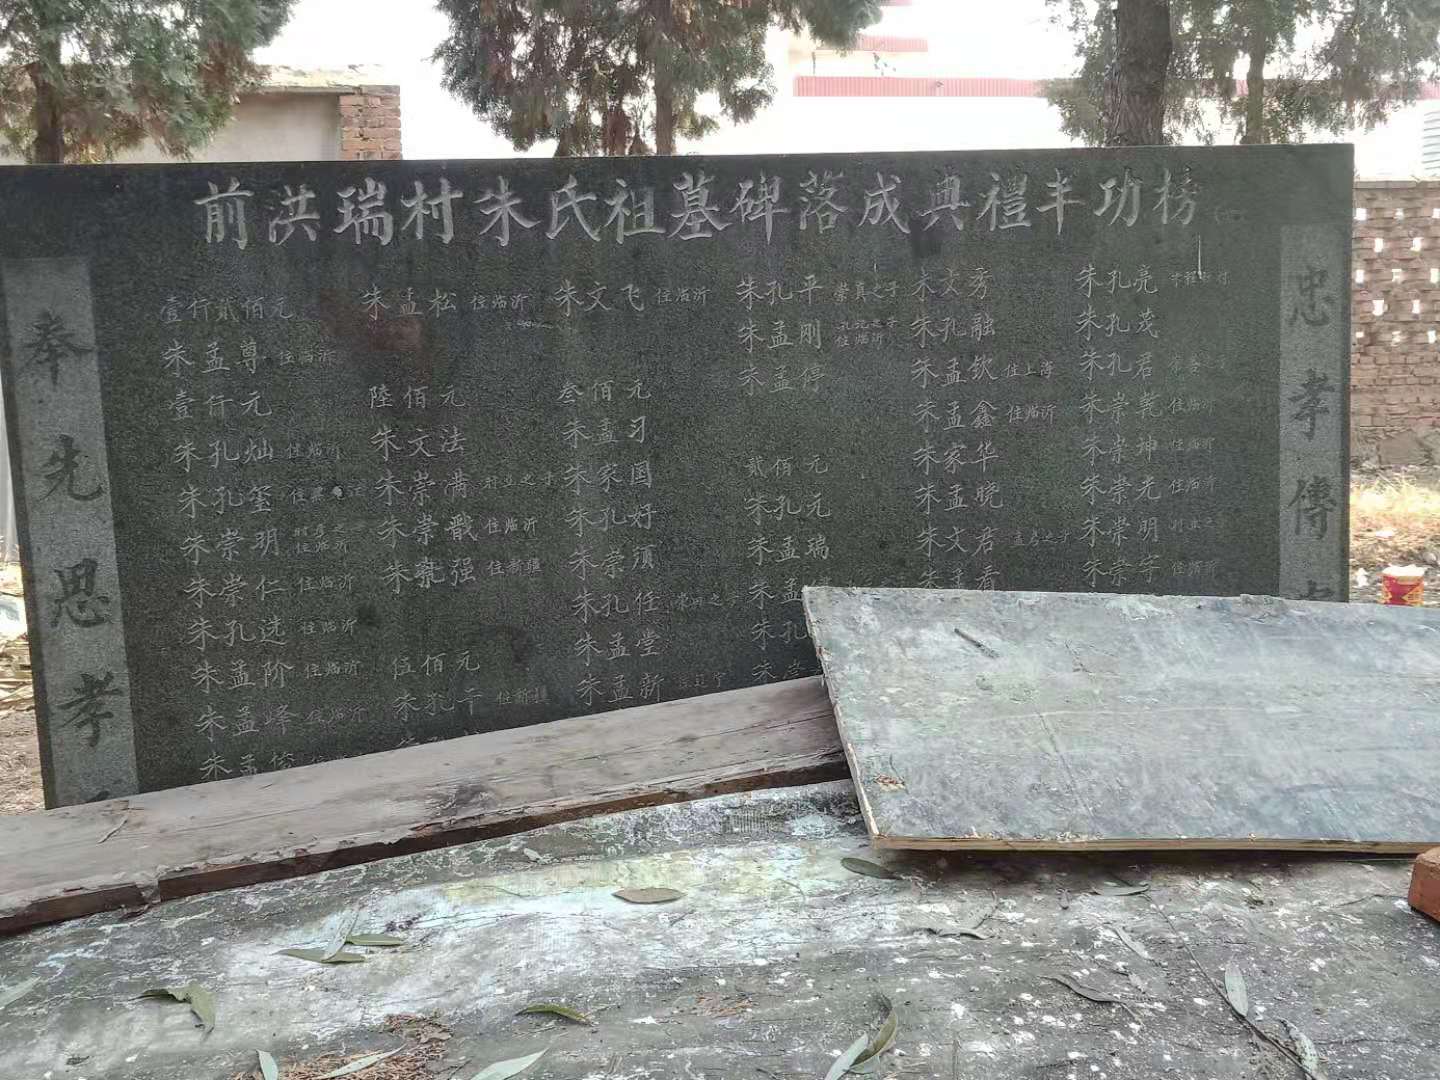 前洪瑞村朱氏祖墓碑落成典禮丰功榜
奉先思孝
壹仟贰佰元
朱孟尊 住临沂
壹仟元
朱孔灿 住临沂
朱孔玺
朱崇明 住临沂
朱崇仁 住临沂
朱孔选 住临沂
朱孟阶 住临沂
朱孟峰 住临沂
朱孟俊
朱孟松 住临沂
陸佰元
朱文法
朱崇满 村业之子
朱崇戬 住临沂
朱崇强 住新疆
伍佰元
朱孔平 住新疆
朱文飞 住临沂
叁佰元
朱孟习
朱家国
朱孔好
朱崇须
朱孔任
朱孟堂
朱孟新 住辽宁
朱孔平 崇真之子
朱孟刚 住临沂
朱孟停
贰佰元
朱孔元
朱孟瑞
朱孟
朱孔
朱孟
朱文秀
朱孔融
朱孟钦 住上海
朱孟鑫 住临沂
朱家华
朱孟晓
朱文君
朱孟看
朱孔亮
朱孔茂
朱孔君
朱崇乾 住临沂
朱崇坤 住临沂
朱崇光 住临沂
朱崇明
朱崇宇 住临沂
忠孝傳